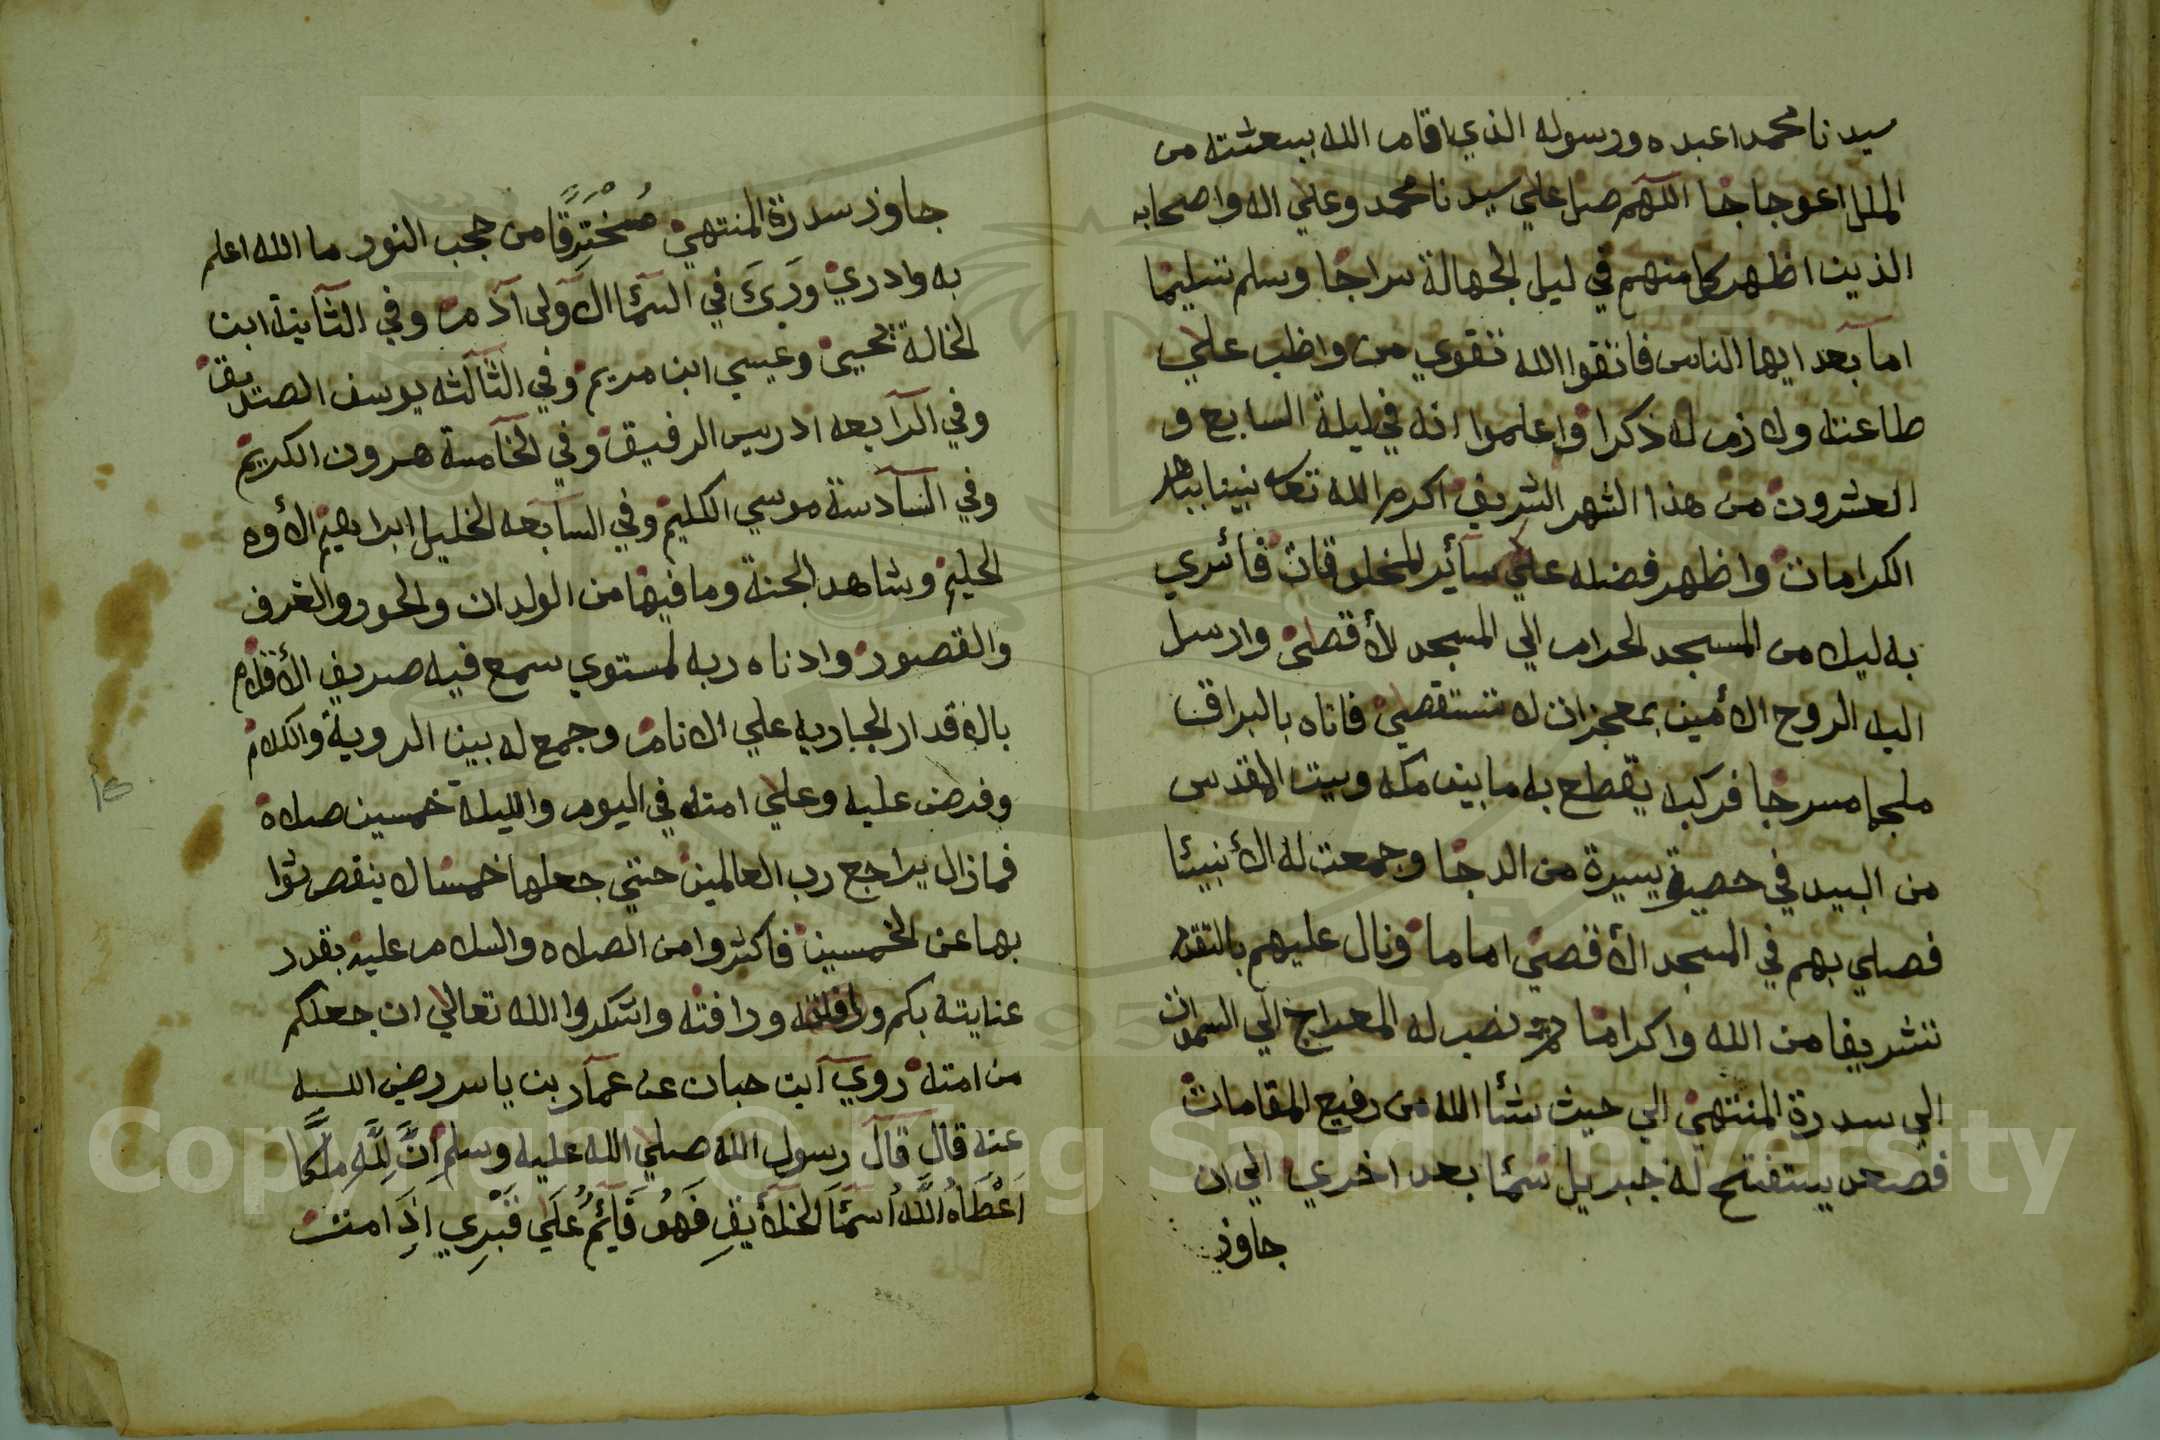 سيدنا محمدا عبده ورسوله الذي اقام الله ببعثته من
الملل اعوجاجا اللهم صل علي سيدنا محمد وعلي اله واصحابه
الذين اظهر كل منهم في ليل الجهالة سراجا وسلم تسليما
اما بعد ايها الناس فاتقوا الله تقوي من واظب علي
طاعته ولازم له ذكرا واعلموا انه في ليلة السابع و
العشرون من هذا الشهر الشريف اكرم الله تعا نبينا بباهر
الكرامات واظهر فضله علي سائر المخلوقات فأسري
به ليلا من المسجد الحرام الي المسجد الأقصى وارسل
اليه الروح الأمين بمعجزات لا تستقصي فاتاه بالبراق
ملجما مسرجا فركبه يقطع به ما بين مكه وبيت المقدس
من البيد في حصية يسيرة من الدجا وجمعت له الأنبيئا
فصلي بهم في المسجد الأقصي اماما ونال عليهم بالتقدم
تشريفا من الله واكراما ثم نصب له المعراج الي السموات
الي سدرة المنتهي الي حيث شئا الله من رفيع المقامات
فصعد يستفتح له جبريل سمٰا بعد اخري الي ان
جاوز
جاوز سدرة المنتهي مُخْتَرِقًا من حجب النور ما الله اعلم
به وادري وَرَئَ في السمٰا الاولى آدم وفي الثانية ابن
الخالة يحيى وعيسي ابن مريم وفي الثالثه يوسف الصديق
وفي الرابعه ادريس الرفيق وفي الخامسة هرون الكريم
وفي السادسة موسي الكليم وفي السابعه الخليل ابراهيم الأوه
الحليم وشاهد الجنة وما فيها من الولدان والحور والغرف
والقصور وادناه ربه لمستوي سمع فيه صريف الأقلام
بالاقدار الجباريه علي الانام وجمع له بين الروية والكلام
وفرض عليه وعلي امته في اليوم والليلة خمسين صلاة
فمازال يراجع رب العالمين حتي جعلها خمسا لا ينقص ثوا
بها عن الخمسين فاكثروا من الصلاه والسلام عليه بقدر
عنايته بكم ورافته واشكروا الله تعالي ان جعلكم
من امته روي ابن حبان عن عمار بن ياسر رضي الله
عنه قال قال رسول الله صلي الله عليه وسلم اِنَّ لِلَّهِ مَلَكًا
اَعْطَاهُ اللَّهُ اَسْمَا الخلأيِقِ فَهُوَ قَائِمٌ عَلَي قَبْرِي اِذَا متت